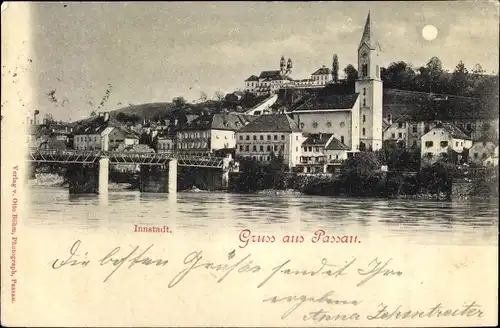 Innstadt.
Gruss aus Passau.
Die besten Grüße sendet Ihre
ergebene
Anna Zehentreiter
Verlag v. Otto Böhm, Photograph, Passau.